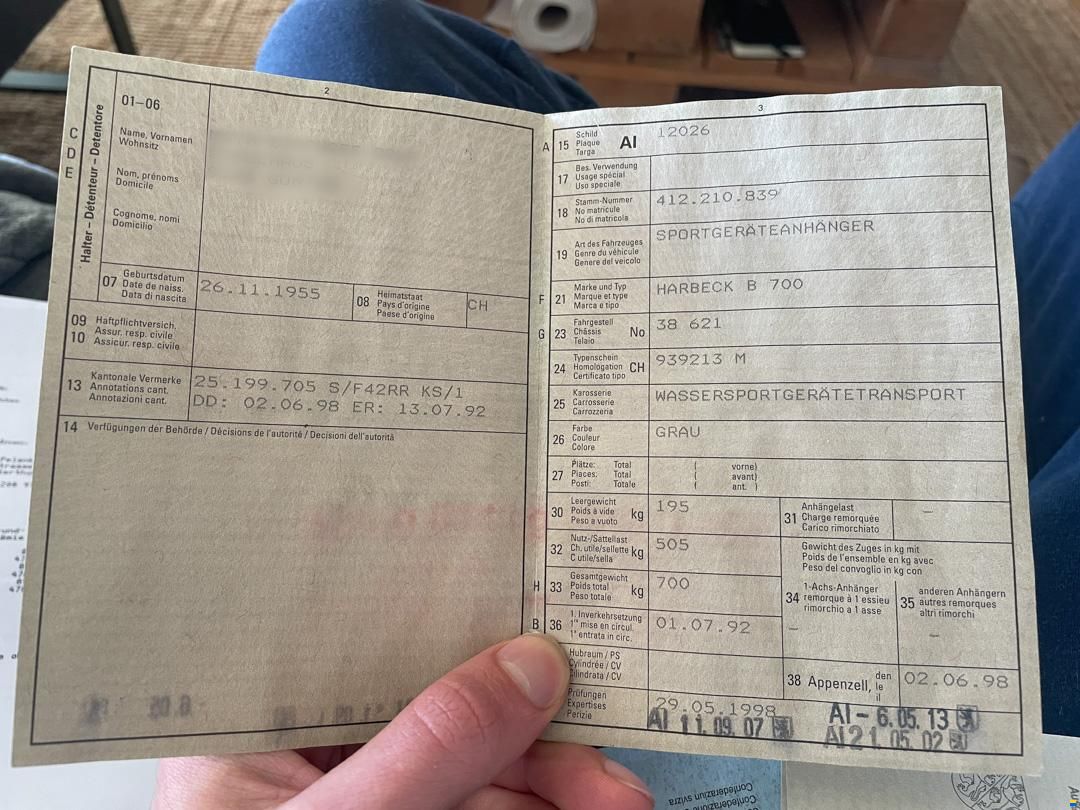 2
C
D
E
Halter – Détenteur – Detentore
01–06
Name, Vornamen
Wohnsitz
Nom, prénoms
Domicile
Cognome, nomi
Domicilio
07 Geburtsdatum
Date de naiss.
Data di nascita
26.11.1955
08 Heimatstaat
Pays d'origine
Paese d'origine
CH
09 Haftpflichtversich.
10 Assur. resp. civile
Assicur. resp. civile
13 Kantonale Vermerke
Annotations cant.
Annotazioni cant.
25.199.705 S/F42RR KS/1
DD: 02.06.98 ER: 13.07.92
14 Verfügungen der Behörde / Décisions de l'autorité / Decisioni dell'autorità
3
A 15 Schild
Plaque
Targa
AI 12026
17 Bes. Verwendung
Usage spécial
Uso speciale
18 Stamm-Nummer
No matricule
No di matricola
412.210.839
19 Art des Fahrzeuges
Genre du véhicule
Genere del veicolo
SPORTGERÄTEANHÄNGER
F 21 Marke und Typ
Marque et type
Marca e tipo
HARBECK B 700
G 23 Fahrgestell
Châssis No
Telaio
38 621
24 Typenschein
Homologation CH
Certificato tipo
939213 M
25 Karosserie
Carrosserie
Carrozzeria
WASSERSPORTGERÄTETRANSPORT
26 Farbe
Couleur
Colore
GRAU
27 Plätze: Total ( vorne)
Places: Total ( avant)
Posti: Totale ( ant. )
30 Leergewicht
Poids à vide kg
Peso a vuoto
195
31 Anhängelast
Charge remorquée
Carico rimorchiato
–
32 Nutz-/Sattellast
Ch. utile/sellette kg
C utile/sella
505
Gewicht des Zuges in kg mit
Poids de l'ensemble en kg avec
Peso del convoglio in kg con
H 33 Gesamtgewicht
Poids total kg
Peso totale
700
34 1-Achs-Anhänger
remorque à 1 essieu
rimorchio a 1 asse
–
35 anderen Anhängern
autres remorques
altri rimorchi
–
B 36 1. Inverkehrsetzung
1re mise en circul.
1a entrata in circ.
01.07.92
Hubraum / PS
Cylindrée / CV
Cilindrata / CV
38 Appenzell, den
le
il
02.06.98
Prüfungen
Expertises
Perizie
29.05.1998
AI 11.09.07
AI – 6.05.13
AI 21.05.02
Confederaziun svizra